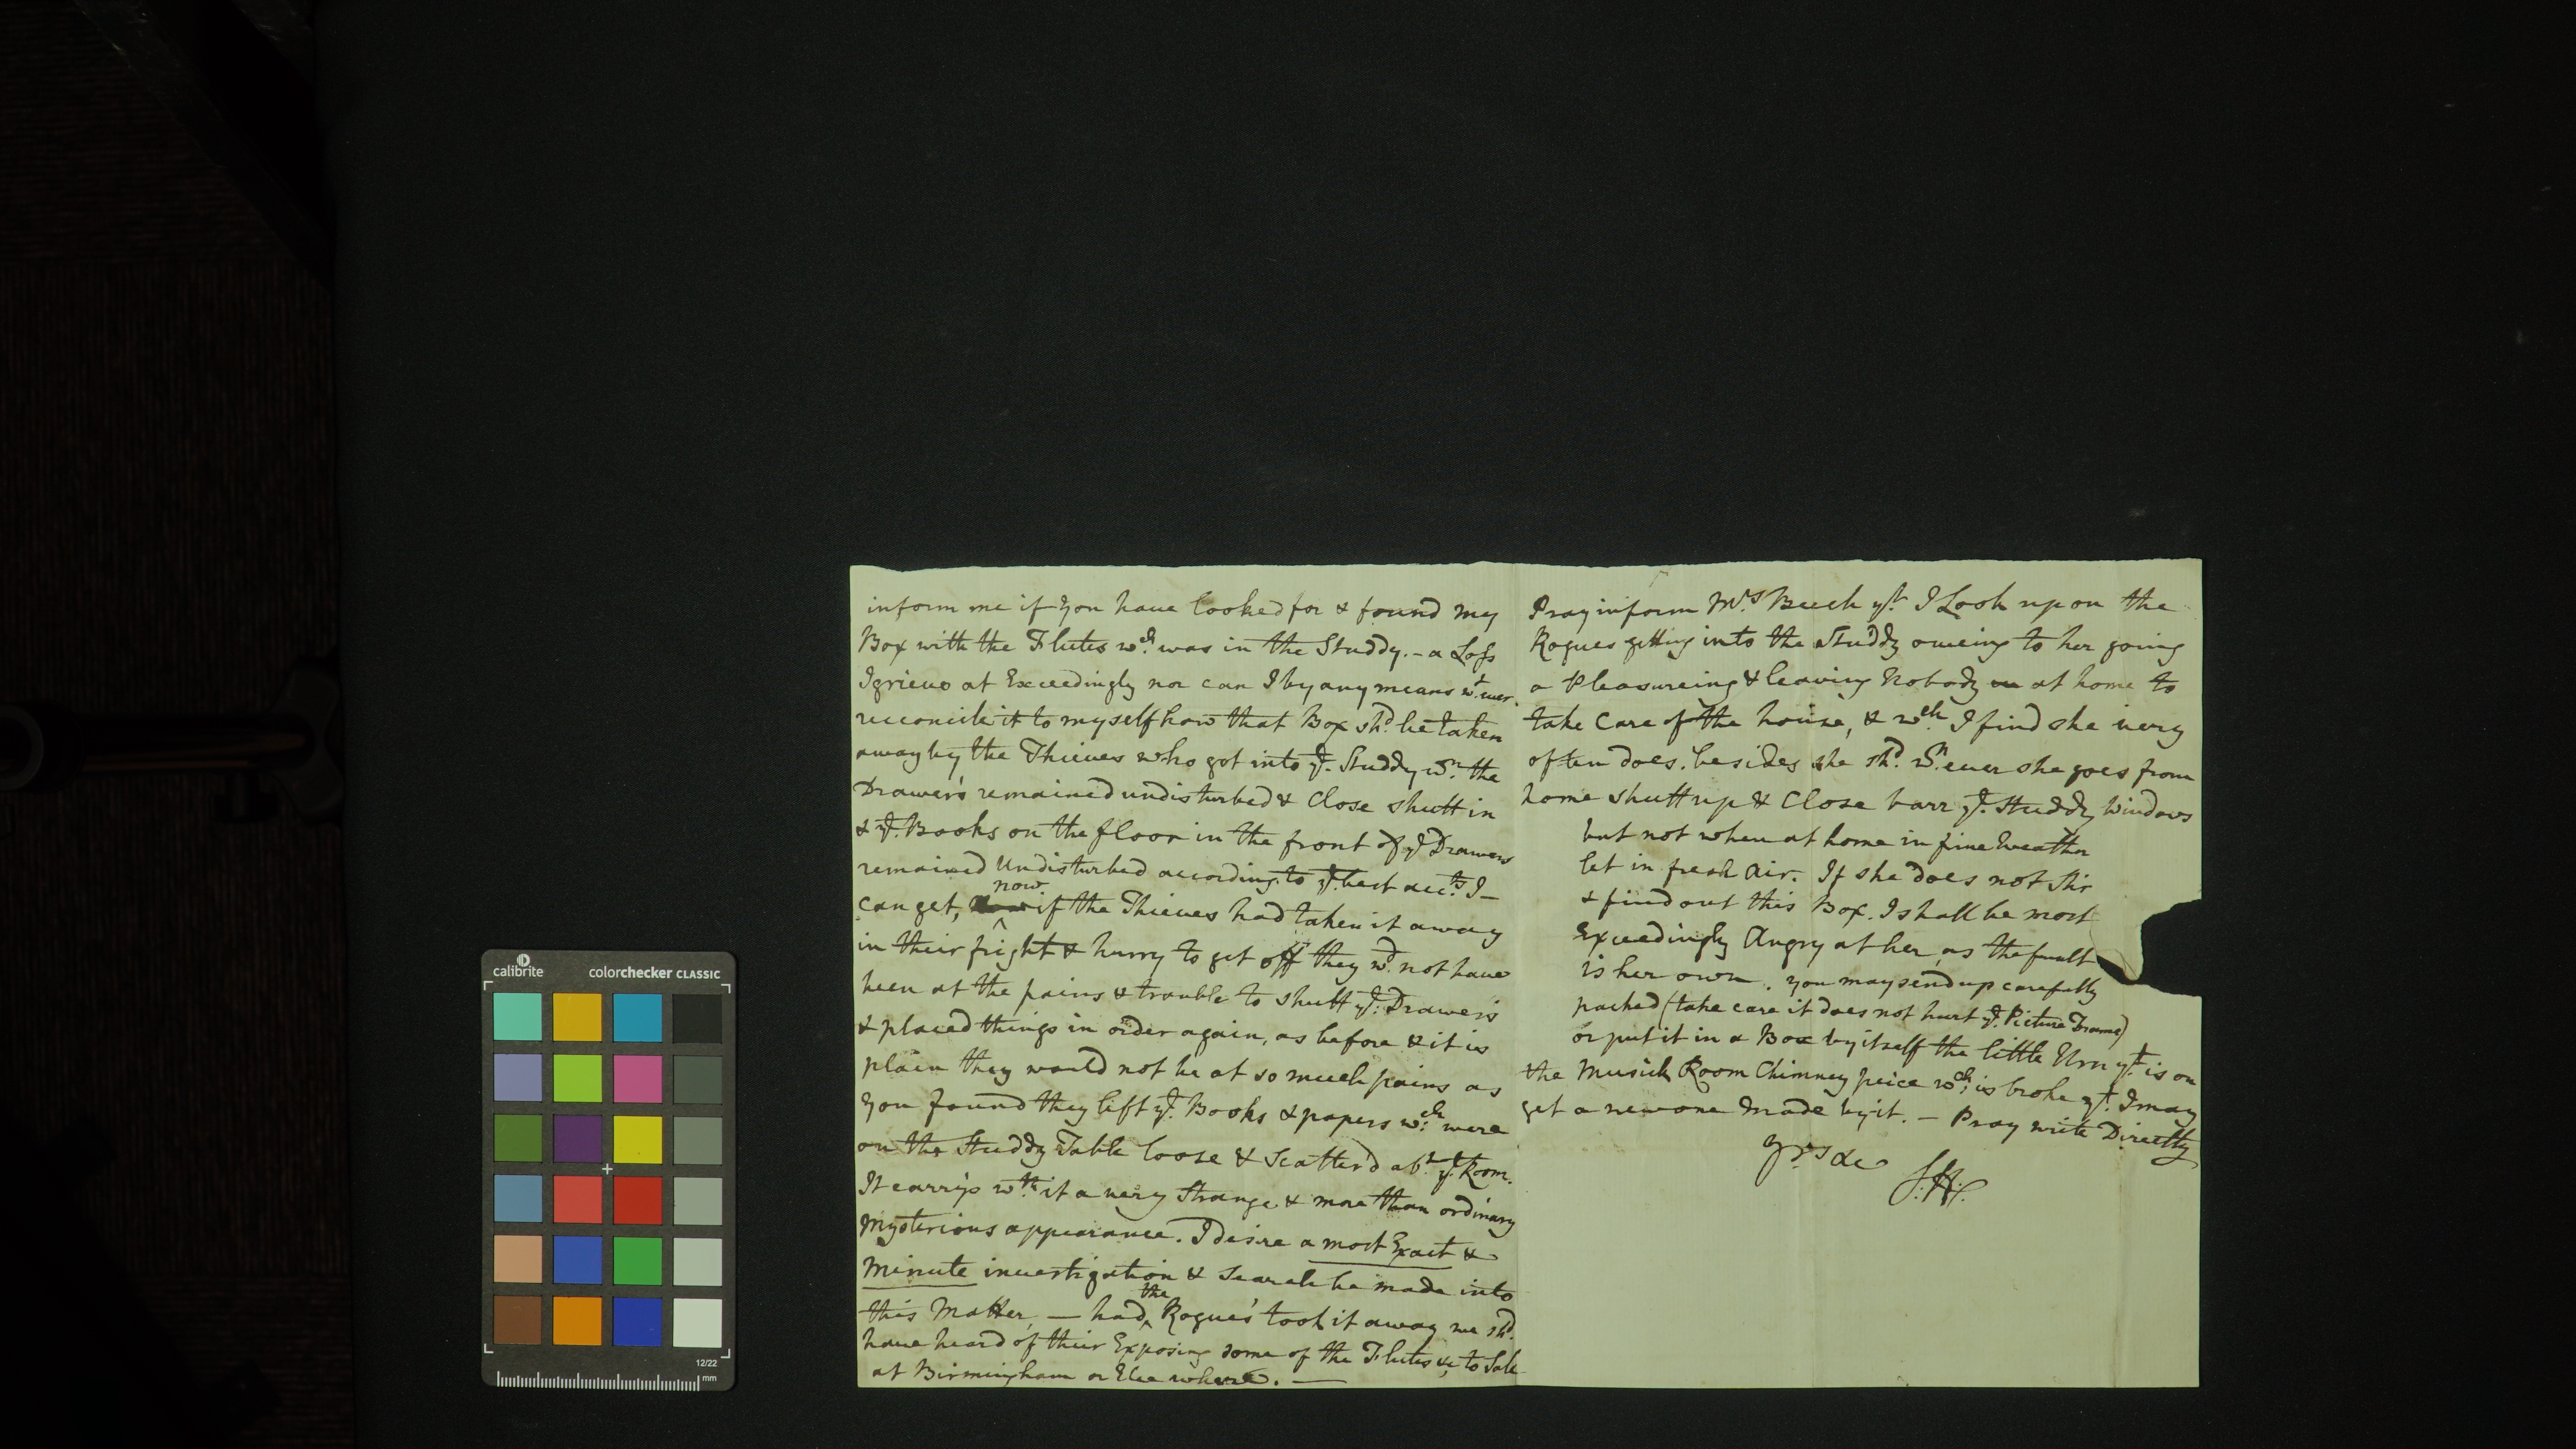 inform me if you have looked for & found my
Box with the Flutes wch. was in the Studdy. - a Loss
I grieve at Exceedingly nor can I by any means wt.ever.
reconcile it to myself how that Box shd. be taken
away by the Thieves who got into ye. Studdy wn. the
Drawers remained undisturbed & Close shutt in
& ye. Books on the floor in the front of ye Drawers
remained undisturbed according to ye. best acc.ts I -
can get, now if the Thieves had taken it away
in their fright & hurry to get off they wd. not have
been at the pains & trouble to shutt ye. Drawers
& placed things in order again, as before & it is
plain they would not be at so much pains as
you found they left ye. Books & papers wch. were
on the Studdy Table loose & Scatter'd abt. ye. Room.
It carrys wth. it a very Strange & more than ordinary
Mysterious appearance. I desire a most Exact &
Minute investigation & Search be made into
this Matter, — had the Rogue's took it away we shd.
have heard of their Exposing some of the Flutes &c to Sale
at Birmingham or Else where. —
Pray inform Mrs. Beech yt. I Look upon the
Rogues getting into the Studdy oweing to her going
a Pleasureing & leaving Nobody at home to
take Care of the house, & wch. I find she very
often does. besides she shd. wn.ever she goes from
home shutt up & Close barr ye. Studdy Windows
but not when at home in fine Weather
let in fresh Air. If she does not Stir
& find out this Box. I shall be most
Exceedingly Angry at her, as the fault
is her own. you may send up carefully
packed (take care it does not hurt ye. Picture Frame)
or put it in a Box by itself the little Urn yt. is on
the Musick Room Chimney peice wch. is broke yt. I may
get a new one Made by it. - Pray write Directly
yrs &c
S:H:
calibrite
colorchecker CLASSIC
12/22
mm